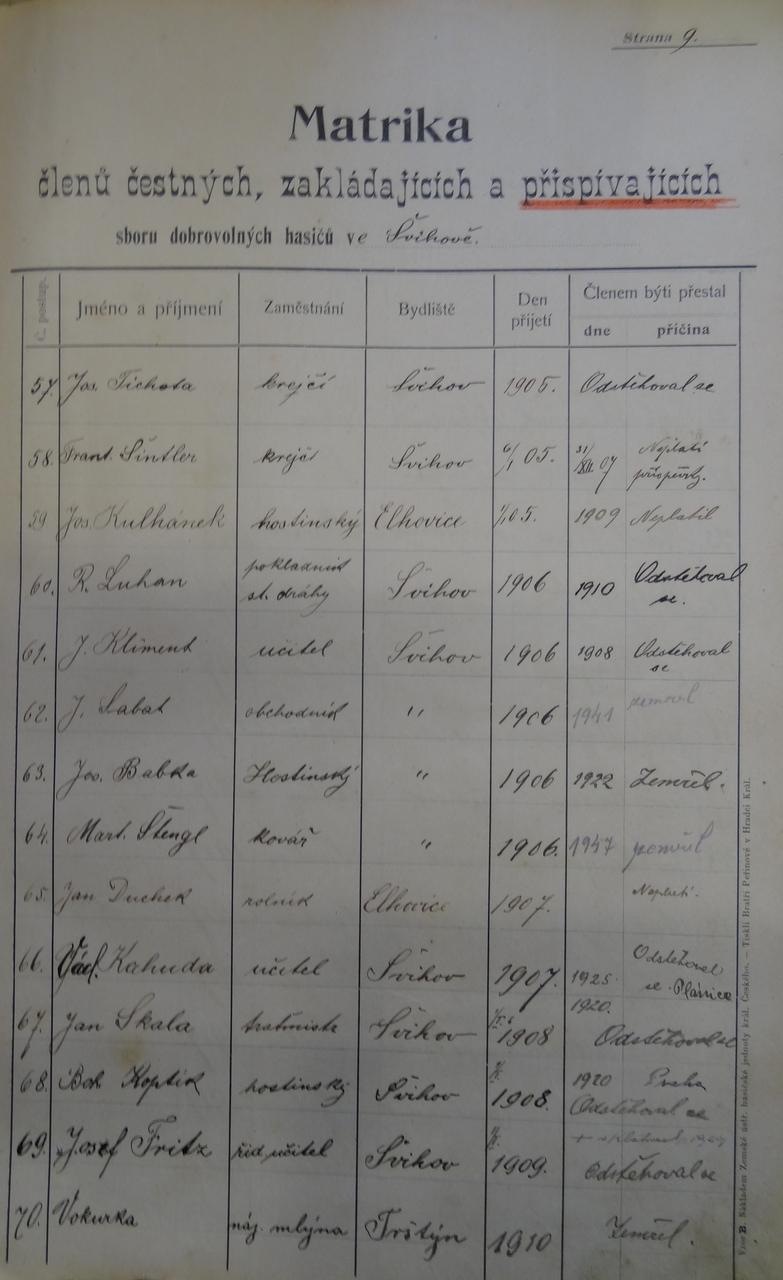 Strana 9.
Matrika
členů čestných, zakládajících a přispívajících
sboru dobrovolných hasičů ve Švihově.
Č. postup. Jméno a příjmení Zaměstnání Bydliště Den přijetí Členem býti přestal
dne příčina
57. Jos. Tichota krejčí Švihov 1905. Odstěhoval se
58. Frant. Šintler krejčí Švihov 6/1 05. 31/XII. 07 Neplatí
příspěvky.
59 Jos. Kulhánek hostinský Elhovice 1/1 05. 1909 Neplatil
60. R. Luhan pokladník
st. dráhy Švihov 1906 1910 Odstěhoval
se.
61. J. Kliment učitel Švihov 1906 1908 Odstěhoval
se
62. J. Sabat obchodník " 1906 1941 zemřel
63. Jos. Babka Hostinský " 1906 1922 Zemřel.
64. Mart. Štengl kovář " 1906. 1947 zemřel
65. Jan Duchek rolník Elhovice 1907. Neplatí.
66. Václ. Kahuda učitel Švihov 1907. 1925 Odstěhoval
se Plánice
67. Jan Skala tratmistr Švihov 1908 1920.
Odstěhoval se
68. Boh. Koptik hostinský Švihov 1908. 1920 Praha
Odstěhoval se
69. Josef Fritz říd. učitel Švihov 1909.
Odstěhoval se
70. Vokurka náj. mlýna Trštýn 1910 Zemřel.
Vzor B. Nákladem Zemské ústř. hasičské jednoty král. Českého. — Tiskli Bratří Peřinové v Hradci Král.